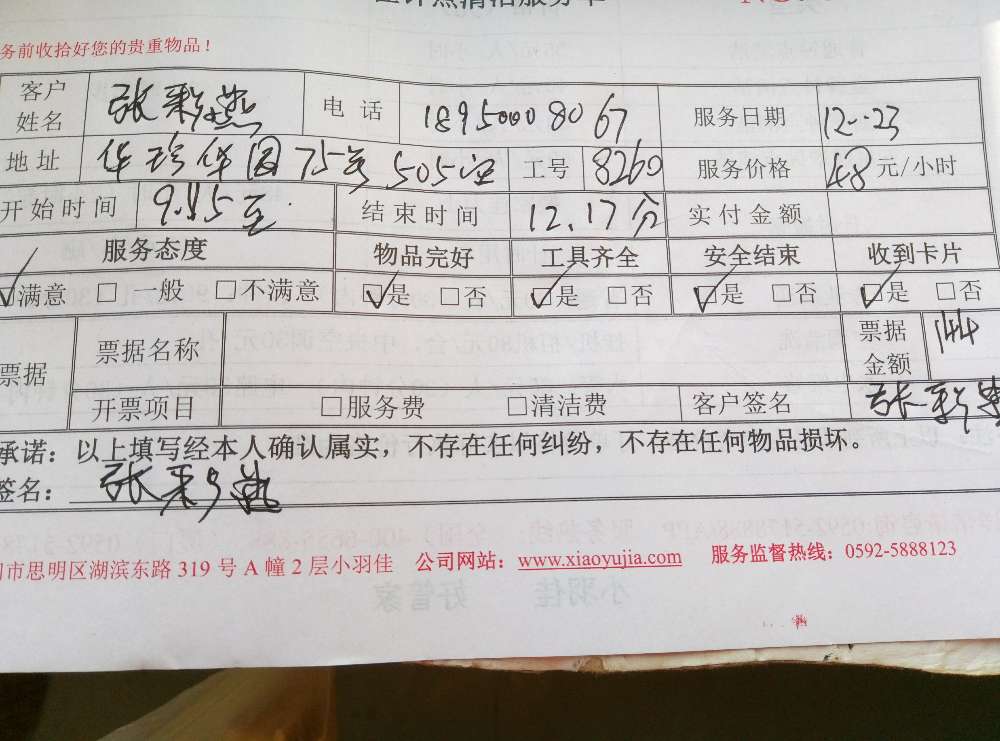 务前收拾好您的贵重物品！
客户姓名 张彩燕 电话 18950008067 服务日期 12-23
地址 华珍华园75号505室 工号 8260 服务价格 48元/小时
开始时间 9.15至 结束时间 12.17分 实付金额
服务态度 物品完好 工具齐全 安全结束 收到卡片
☑满意 □一般 □不满意 ☑是 □否 ☑是 □否 ☑是 □否 ☑是 □否
票据 票据名称 票据金额 144
开票项目 □服务费 □清洁费 客户签名 张彩燕
承诺：以上填写经本人确认属实，不存在任何纠纷，不存在任何物品损坏。
签名：张彩燕
市思明区湖滨东路 319 号 A 幢 2 层小羽佳 公司网站：www.xiaoyujia.com 服务监督热线：0592-5888123